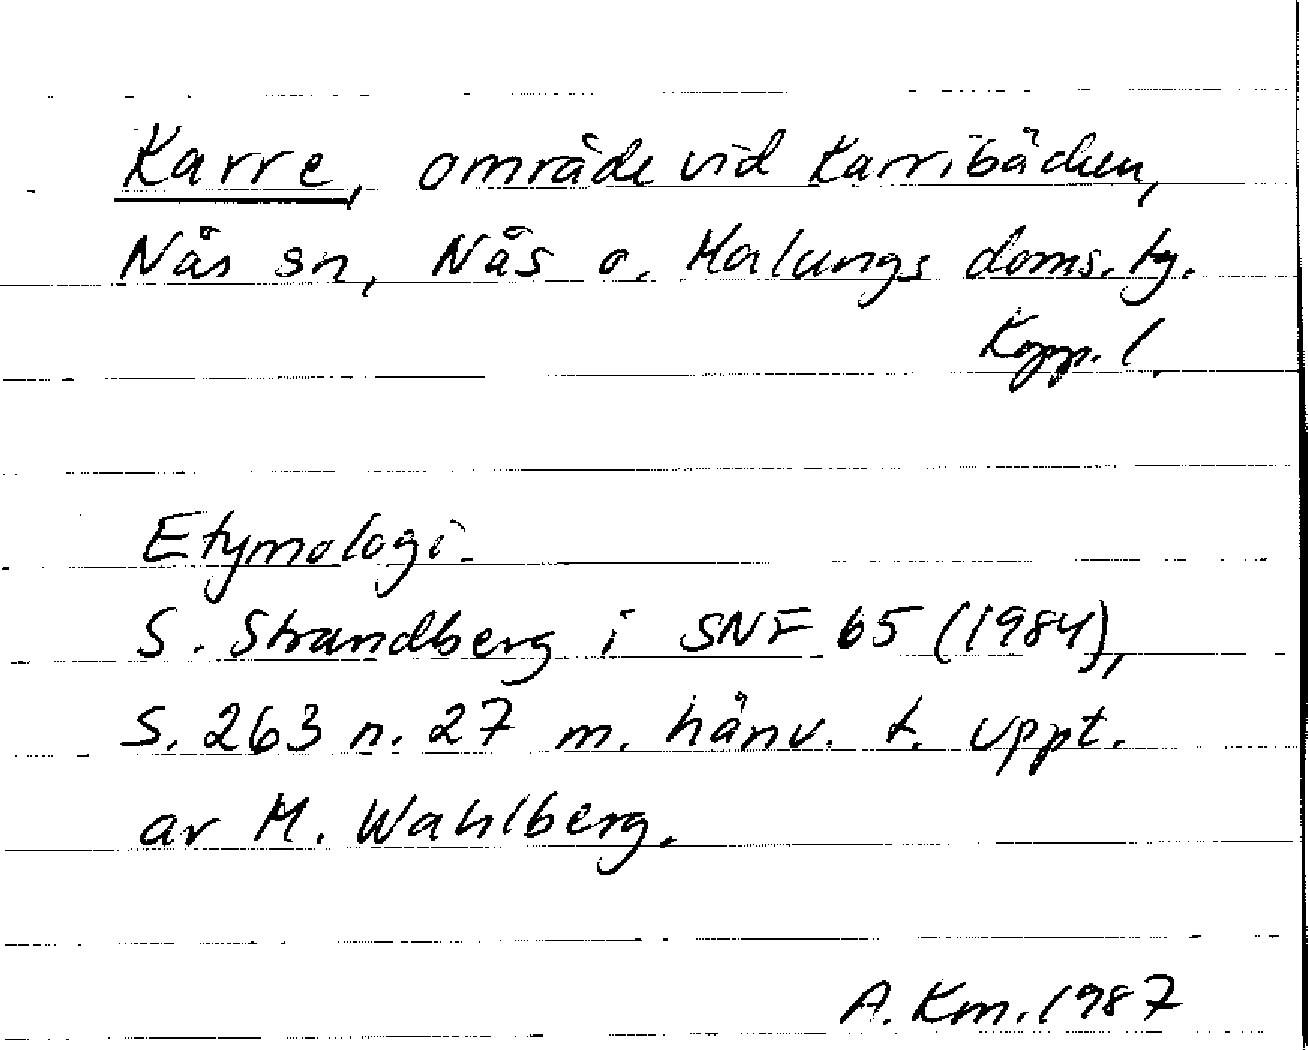 Karre, område vid Karribäcken,
Nås sn, Nås o. Malungs doms. tg.
Kopp. l.
Etymologi.
S. Strandberg i SNF 65 (1984),
s. 263 n. 27 m. hänv. t. uppt.
av M. Wahlberg.
A. Km. 1987